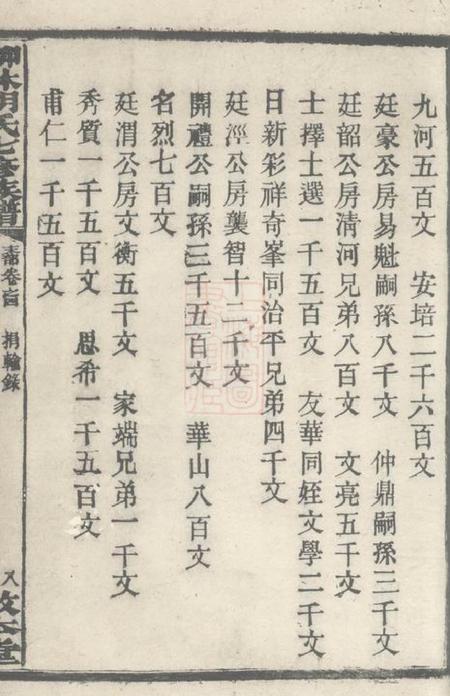 九河五百文　安培二千六百文
廷豪公房易魁嗣孫八千文　仲鼎嗣孫三千文
廷韶公房清河兄弟八百文　文亮五千文
士擇士選一千五百文　友華同姪文學二千文
日新彩祥奇峯同治平兄弟四千文
廷涇公房襲智十二千文
開禮公嗣孫三千五百文　華山八百文
名烈七百文
廷渭公房文衡五千文　家端兄弟一千文
秀質一千五百文　思希一千五百文
甫仁一千五百文
氏七修族譜
卷首　捐輸錄
八
敦本堂